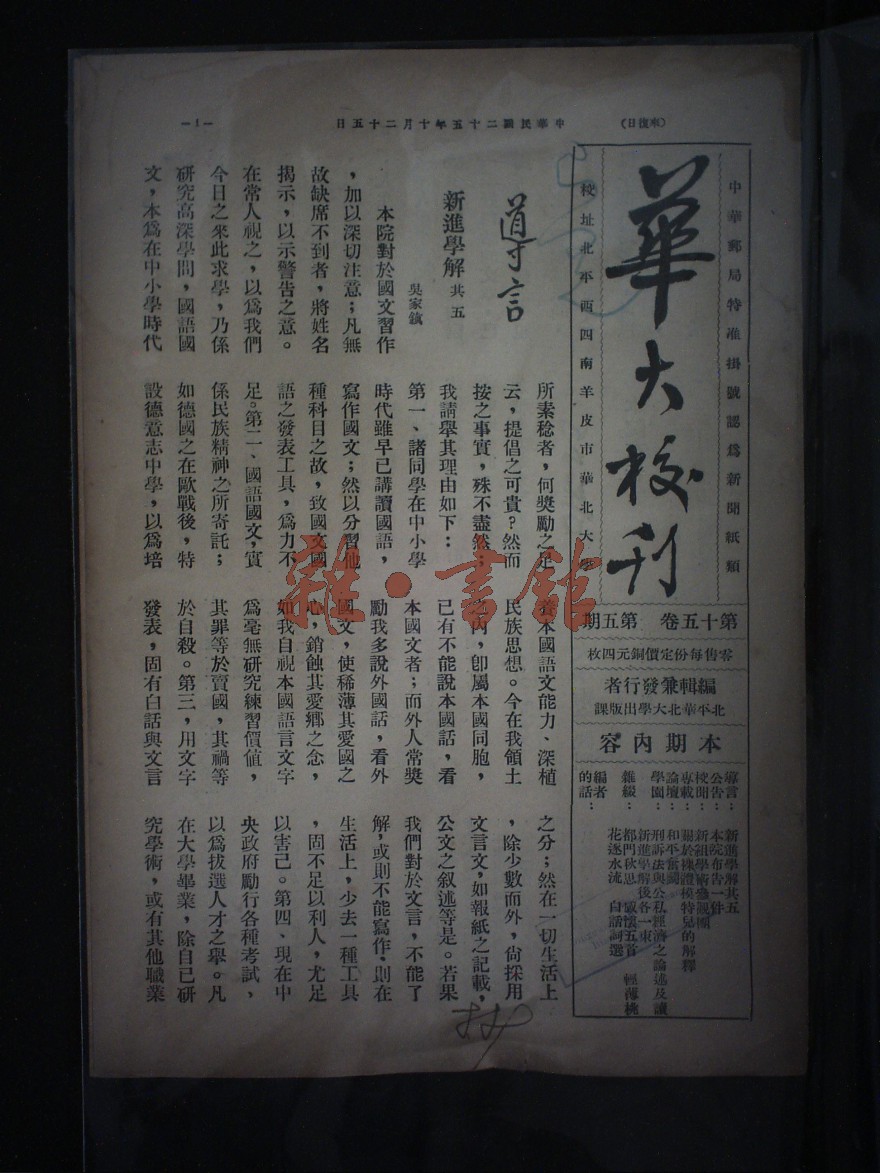 中華民國二十五年十月二十五日
—1—
中華郵局特准掛號認爲新聞紙類
華大校刊
校址北平西四南羊皮市華北大學
第十五卷 第五期
零售每份定價銅元四枚
編輯兼發行者
北平華北大學出版課
本期內容
導言：新進學解其五
公告：本院布告一件
專載：關於裸體模特兒的解釋
論壇：和平奮鬭
雜綴：都門秋思 感懷五首 輕薄桃
花逐水流 白話詞選
編者的話：
導言
新進學解 其五
吳家鎮
本院對於國文習作
，加以深切注意；凡無
故缺席不到者，將姓名
揭示，以示警告之意。
在常人視之，以爲我們
今日之來此求學，乃係
研究高深學問，國語國
文，本爲在中小學時代
所素稔者，何獎勵之足
云，提倡之可貴？然而
按之事實，殊不盡然；
我請舉其理由如下：
第一、諸同學在中小學
時代雖早已講讀國語，
寫作國文；然以分習他
種科目之故，致國文國
語之發表工具，爲力不
足。第二、國語國文，實
係民族精神之所寄託；
如德國之在歐戰後，特
設德意志中學，以爲培
養本國語文能力、深植
民族思想。今在我領土
之內，卽屬本國同胞，
已有不能說本國話，看
本國文者；而外人常獎
勵我多說外國話，看外
國文，使稀薄其愛國之
心，銷蝕其愛鄉之念，
如我自視本國語言文字
爲毫無研究練習價値，
其罪等於賣國，其禍等
於自殺。第三，用文字
發表，固有白話與文言
之分；然在一切生活上
，除少數而外，尙採用
文言文，如報紙之記載，
公文之叙述等是。若果
我們對於文言，不能了
解，或則不能寫作，則在
生活上，少去一種工具
，固不足以利人，尤足
以害己。第四、現在中
央政府勵行各種考試，
以爲拔選人才之舉。凡
在大學畢業，除自己研
究學術，或有其他職業
雜·書館